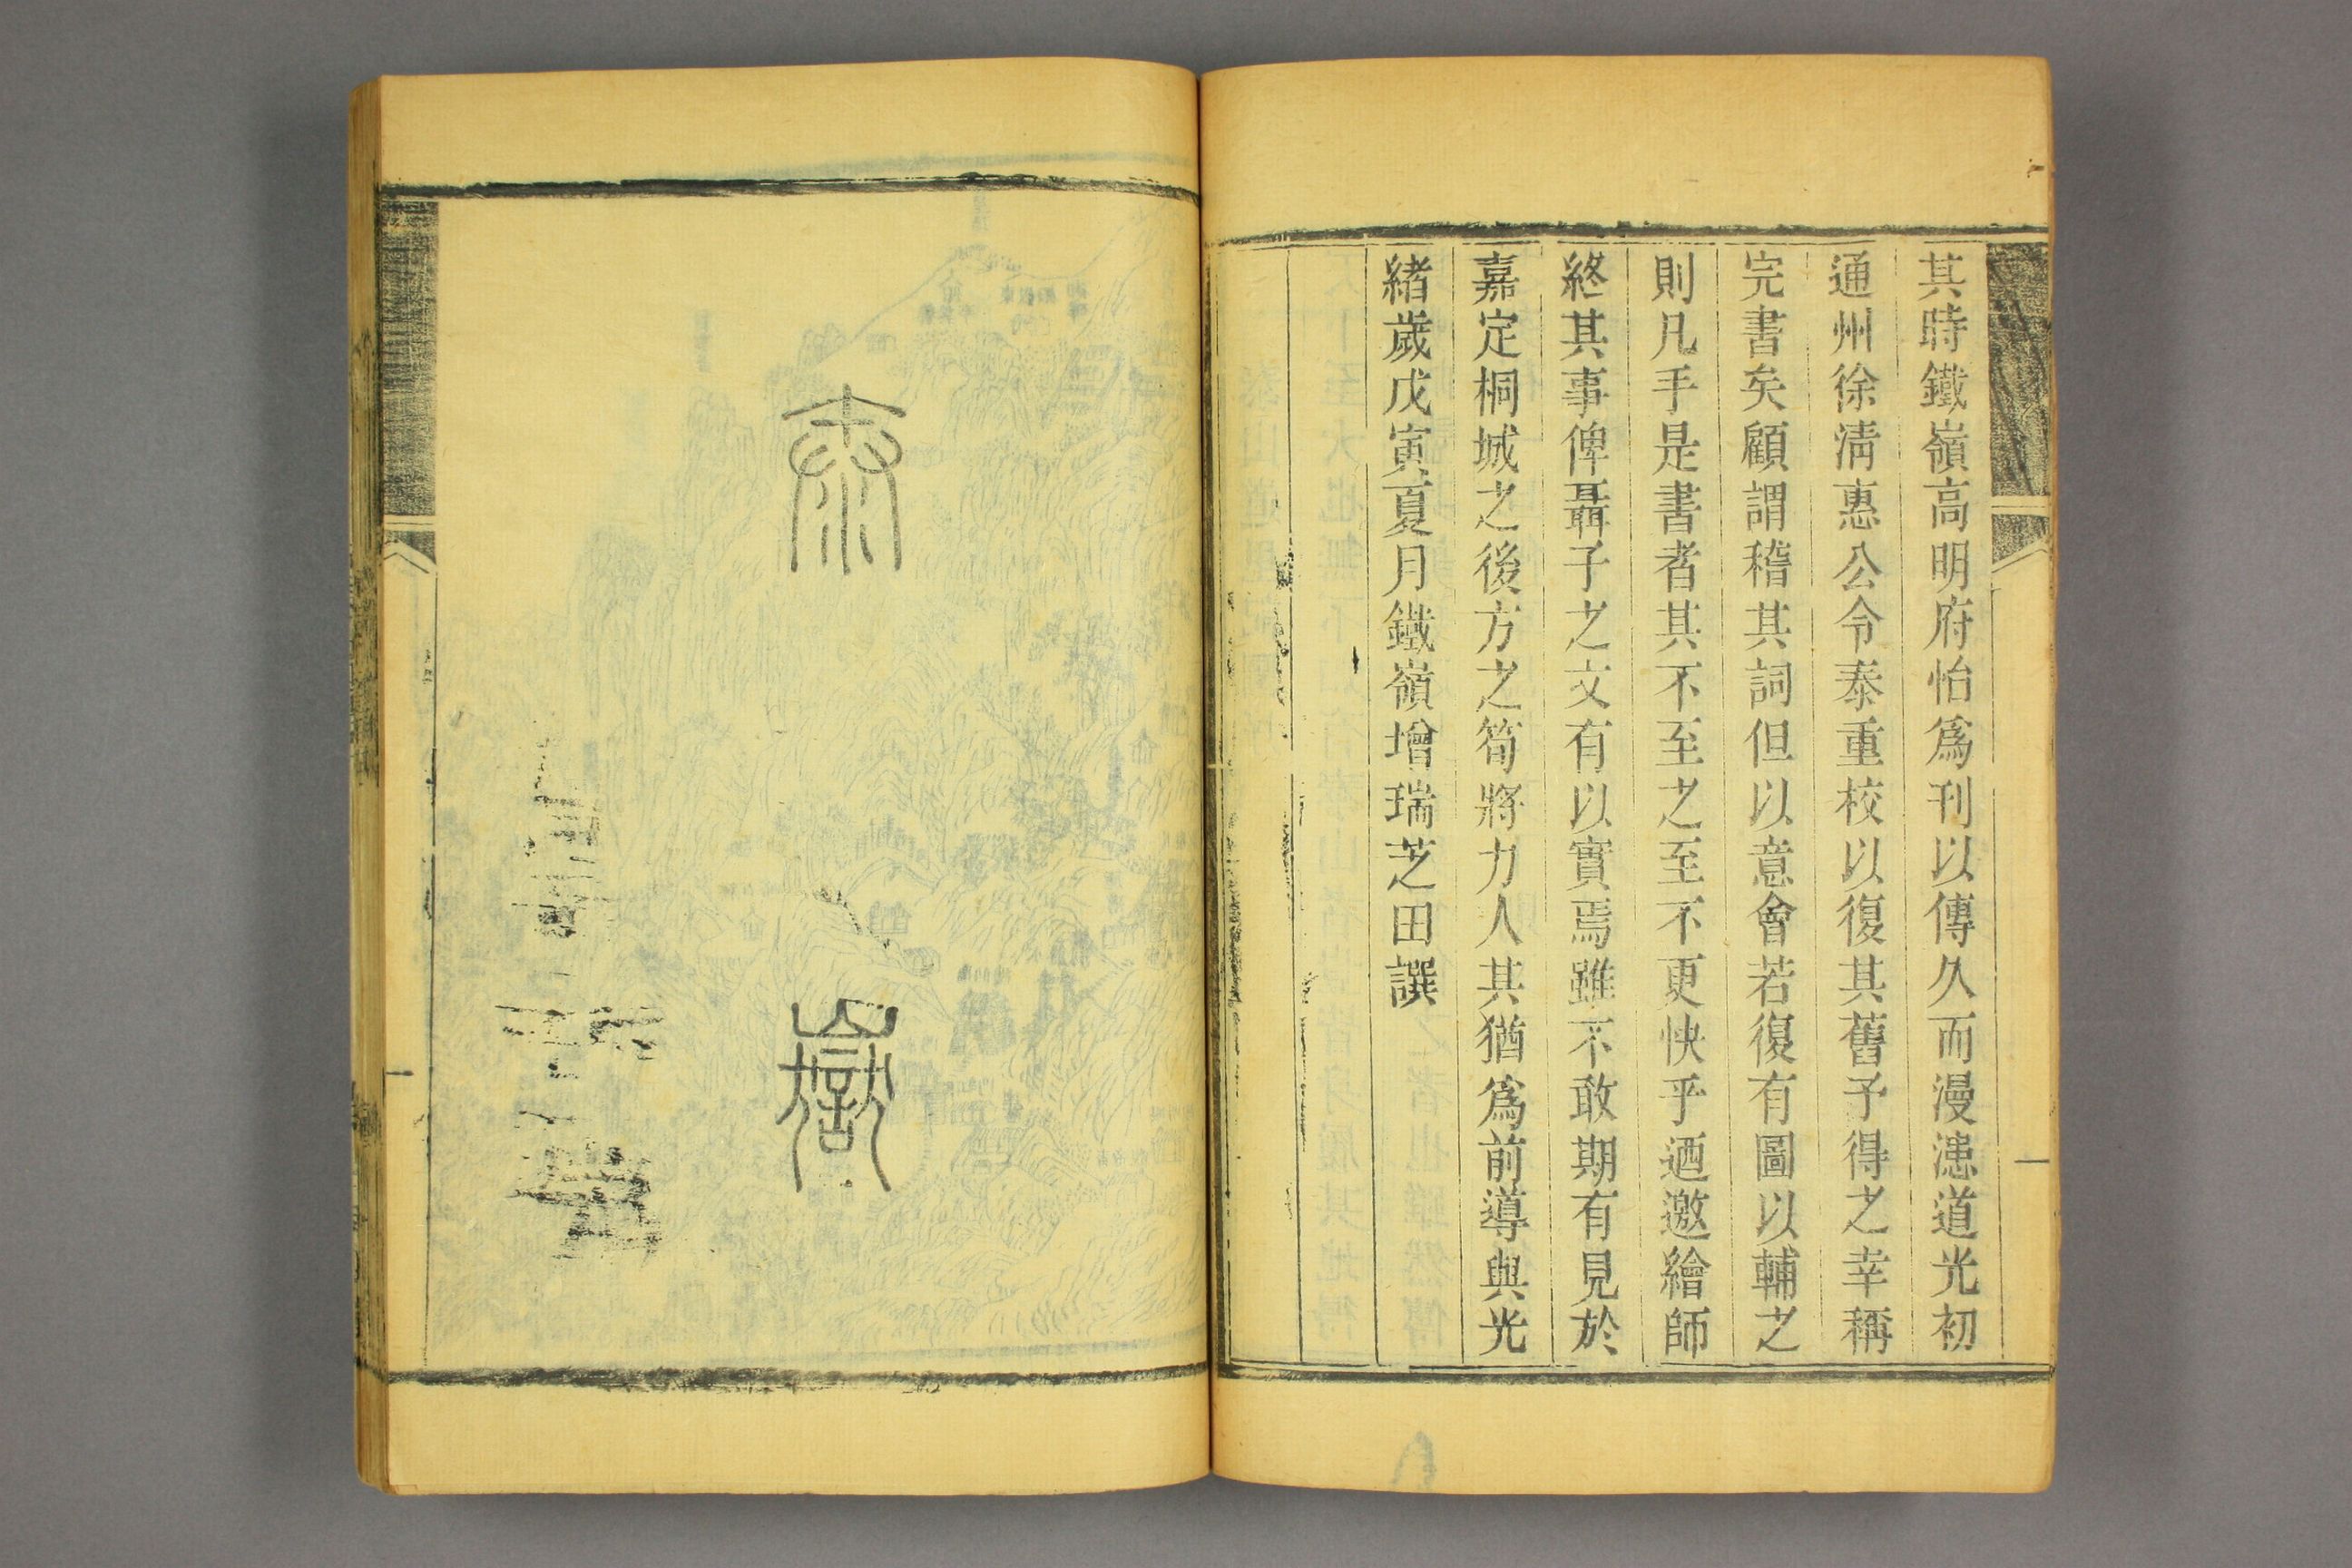 其時鐵嶺高明府怡爲刊以傳久而漫漶道光初
通州徐淸惠公令泰重校以復其舊予得之幸稱
完書矣顧謂稽其詞但以意會若復有圖以輔之
則凡手是書者其不至之至不更快乎迺邀繪師
終其事俾聶子之文有以實焉雖不敢期有見於
嘉定桐城之後方之筍將力人其猶爲前導與光
緒歲戊寅夏月鐵嶺增瑞芝田譔
一
泰嶽
一